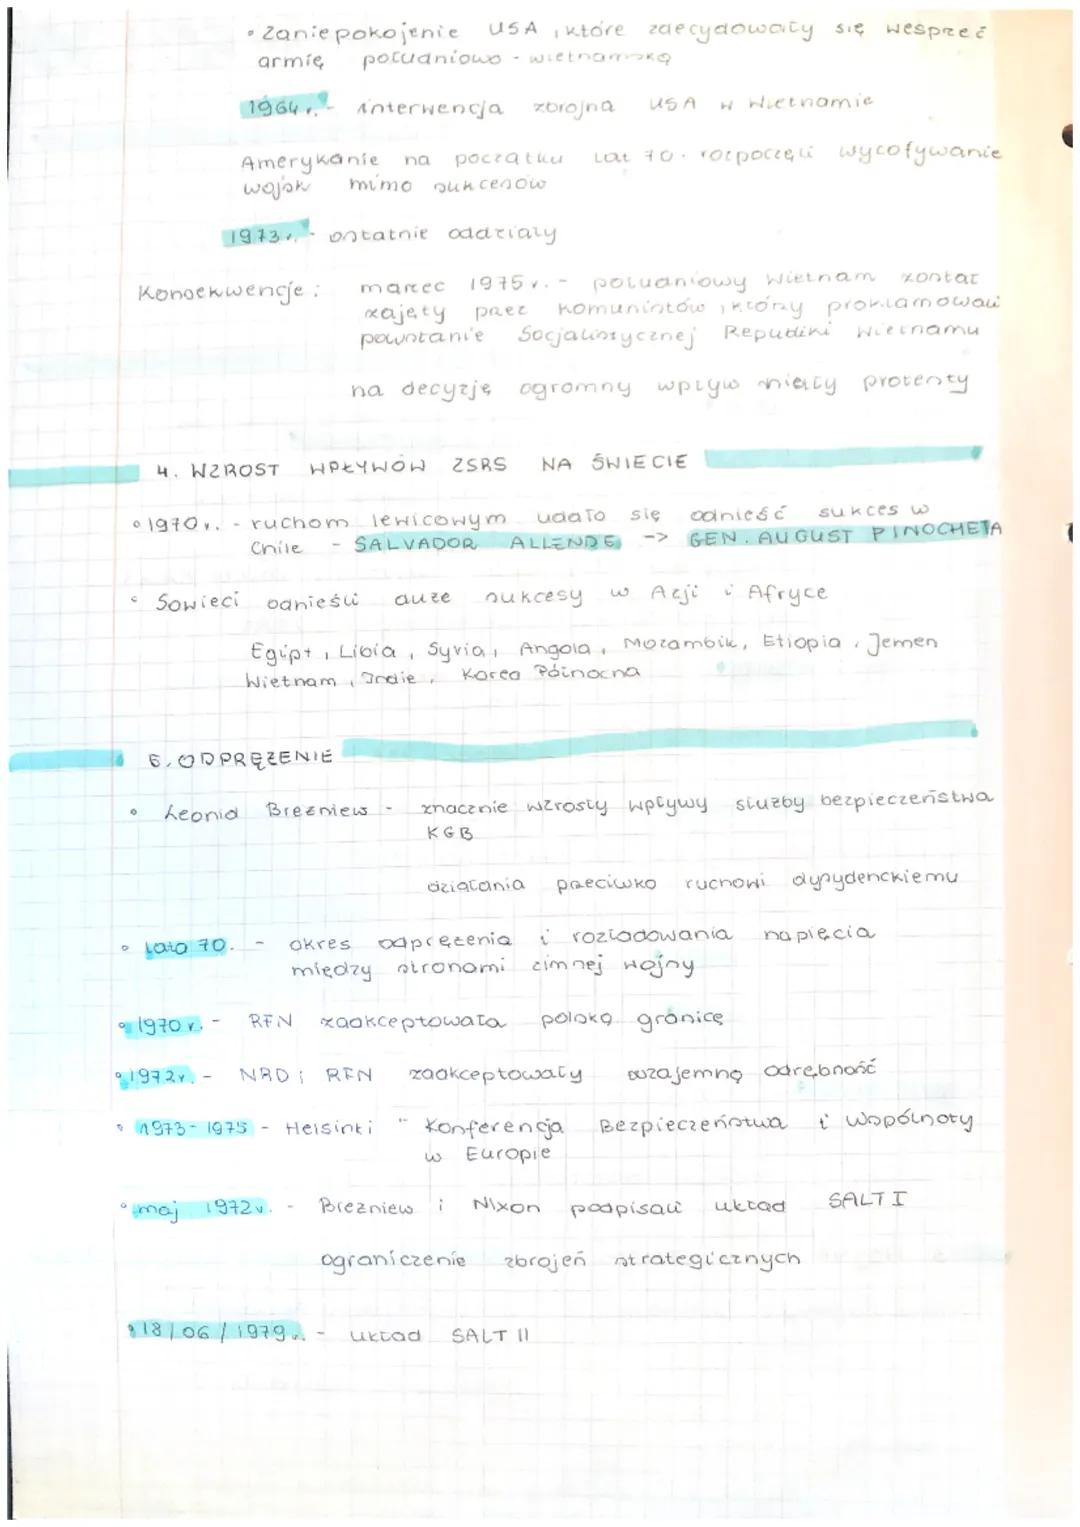 • Zaniepokojenie USA, które zdecydowały się wesprzeć
armię południowo - wietnamską
1964r. - interwencja zbrojna USA w Wietnamie
Amerykanie na początku lat 70. rozpoczęli wycofywanie
wojsk mimo sukcesów
1973r. - ostatnie oddziały
Konsekwencje: marzec 1975r. - południowy Wietnam został
zajęty przez komunistów, którzy proklamowali
powstanie Socjalistycznej Republiki Wietnamu
na decyzję ogromny wpływ miały protesty
4. WZROST WPŁYWÓW ZSRS NA ŚWIECIE
• 1970r. - ruchom lewicowym udało się odnieść sukces w
Chile - SALVADOR ALLENDE -> GEN. AUGUST PINOCHETA
• Sowieci odnieśli duże sukcesy w Azji i Afryce
Egipt, Libia, Syria, Angola, Mozambik, Etiopia, Jemen
Wietnam, Indie, Korea Północna
6. ODPRĘŻENIE
• Leonid Breżniew - znacznie wzrosły wpływy służby bezpieczeństwa
KGB
działania przeciwko ruchowi dysydenckiemu
• Lata 70. - okres odprężenia i rozładowania napięcia
między stronami zimnej wojny
• 1970 r. - RFN zaakceptowała polską granicę
• 1972r. - NRD i RFN zaakceptowały wzajemną odrębność
• 1973-1975 - Helsinki " Konferencja Bezpieczeństwa i Wspólnoty
w Europie
• maj 1972r. - Breżniew i Nixon podpisali układ SALT I
ograniczenie zbrojeń strategicznych
• 18/06/1979r. - układ SALT II